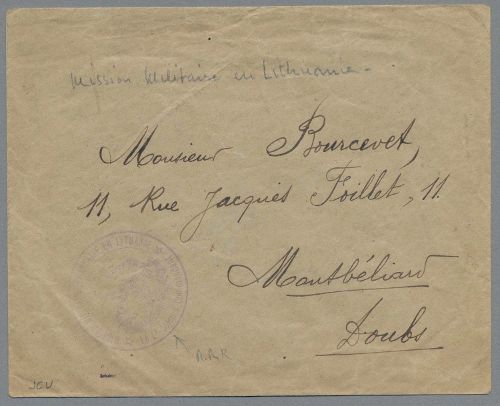 Mission Militaire en Lithuanie -
Monsieur Bourcevet,
11, Rue Jacques Foillet, 11.
Montbéliard
Doubs
EN LITHUANIE
R.R.R
JEU